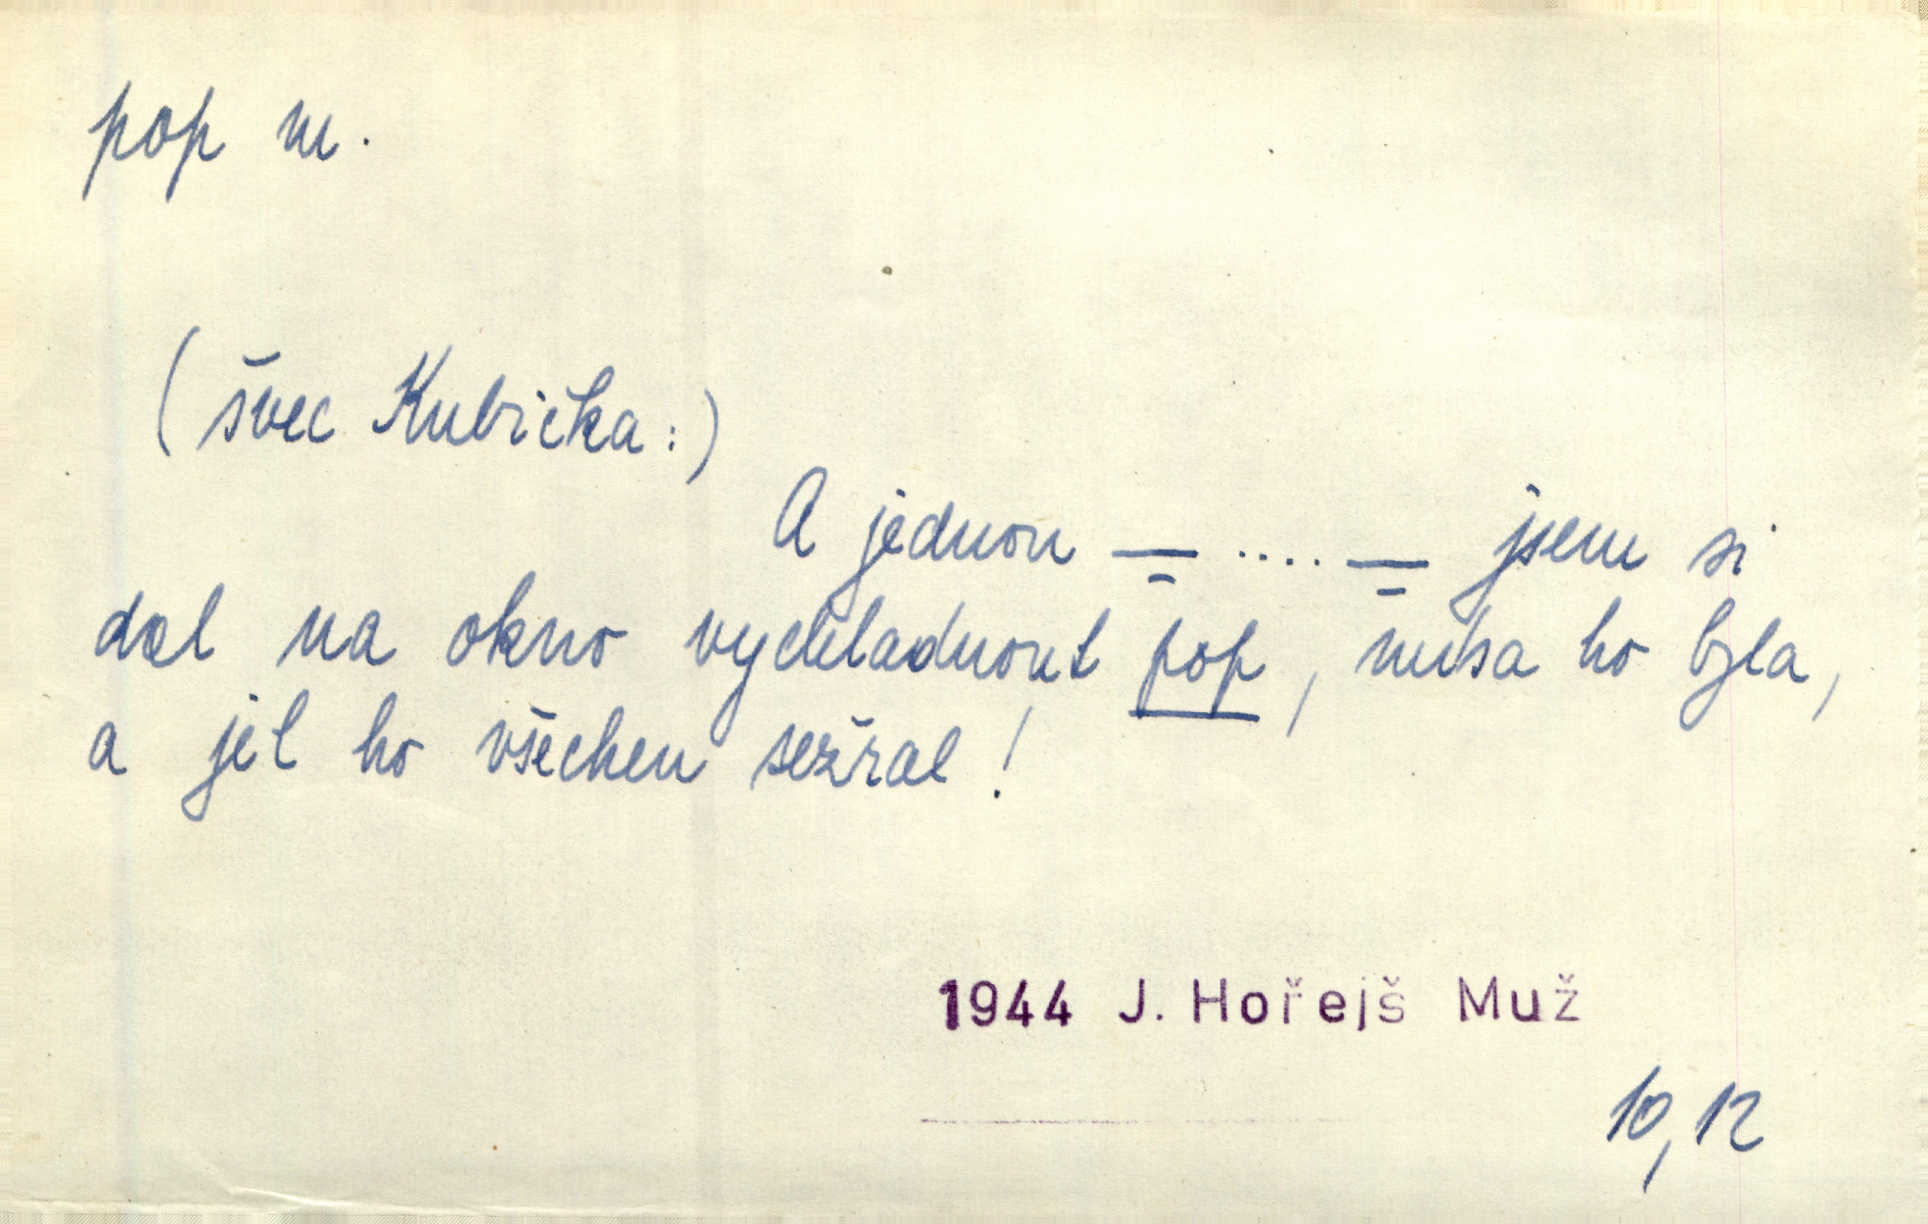 pop m.
(švec Kubička:)
A jednou — .... — jsem si
dal na okno vychladnout pop, musa ho byla,
a jel ho všechen sežral!
1944 J. Hořejš Muž
10,12